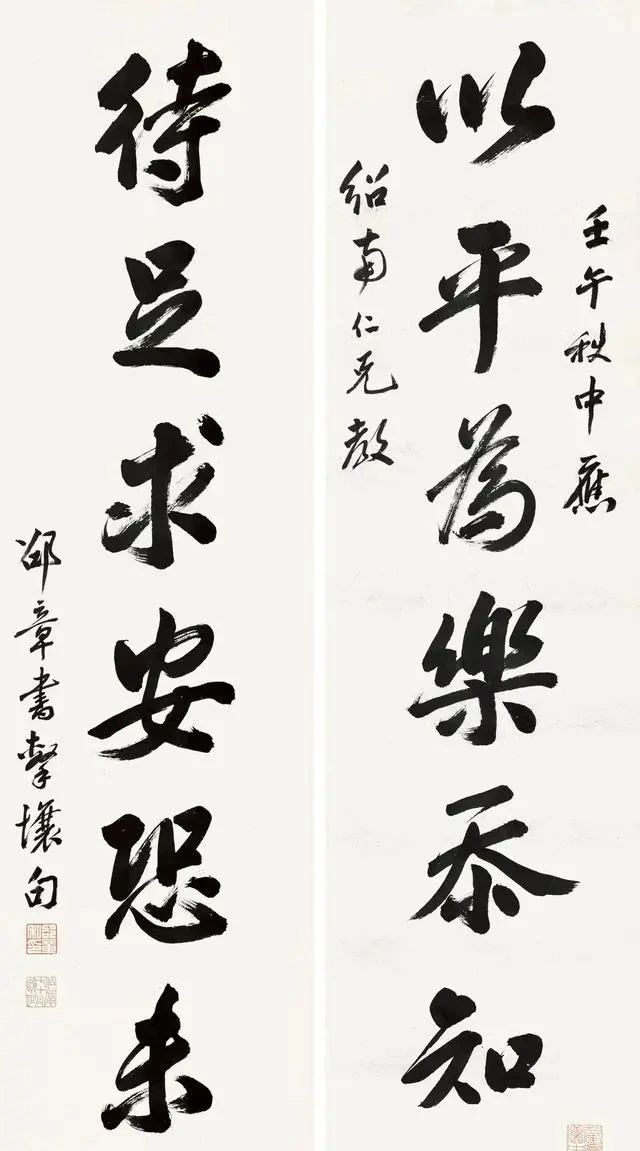 壬午秋中應
以平為樂忝知
紹南仁兄教
待足求安恐未
邵章書擊壤句